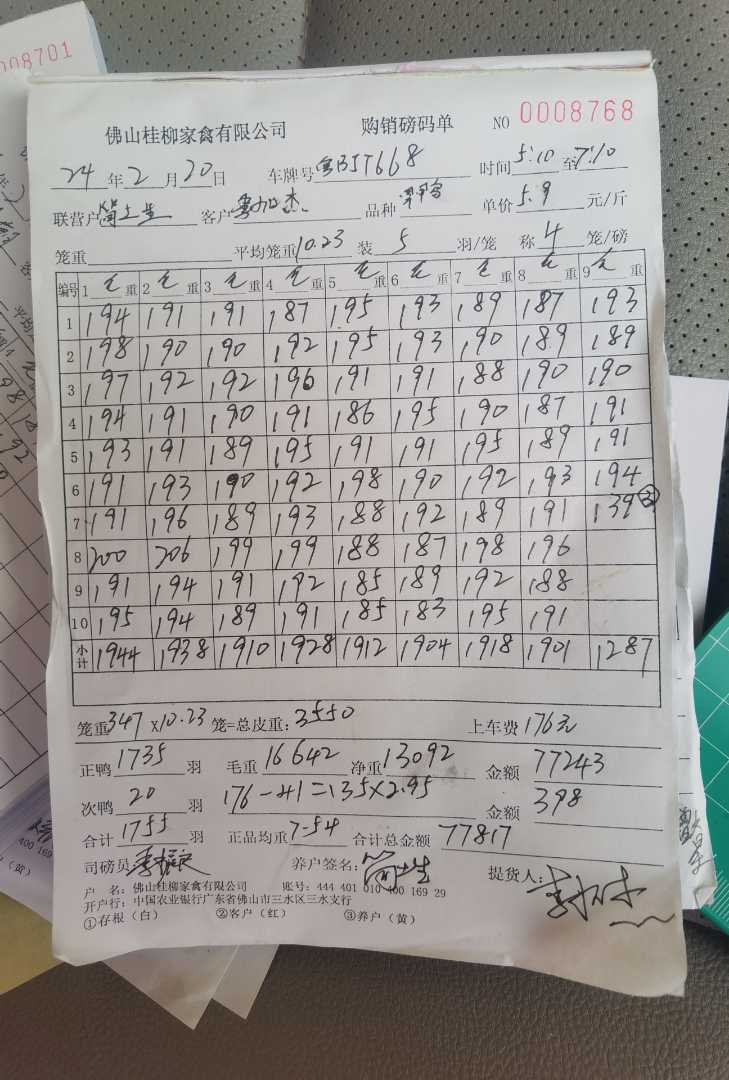 008701
佛山桂柳家禽有限公司 购销磅码单 NO 0008768
24年2月20日 车牌号粤B5T668 时间5:10至7:10
联营户简土生 客户 品种 单价5.9元/斤
笼重 平均笼重10.23 装5羽/笼 称4笼/磅
编号 1毛重 2毛重 3毛重 4毛重 5毛重 6毛重 7毛重 8毛重 9毛重
1 194 191 191 187 195 193 189 187 193
2 198 190 190 192 195 193 190 189 189
3 197 192 192 196 191 191 188 190 190
4 194 191 190 191 186 195 190 187 191
5 193 191 189 195 191 191 195 189 191
6 191 193 190 192 198 190 192 193 194
7 191 196 189 193 188 192 189 191 139③
8 200 206 199 199 188 187 198 196
9 191 194 191 192 185 189 192 188
10 195 194 189 191 185 183 195 191
小计 1944 1938 1910 1928 1912 1904 1918 1901 1287
笼重347×10.23笼=总皮重:3550 上车费176元
正鸭1735羽 毛重16642 净重13092 金额77243
次鸭20羽 176-41=135×2.95 金额398
合计1755羽 正品均重7-54 合计总金额77817
司磅员: 养户签名:简土生 提货人:
户 名:佛山桂柳家禽有限公司 账号:444 401 010 400 169 29
开户行:中国农业银行广东省佛山市三水区三水支行
①存根(白) ②客户(红) ③养户(黄)
400 169
(黄)